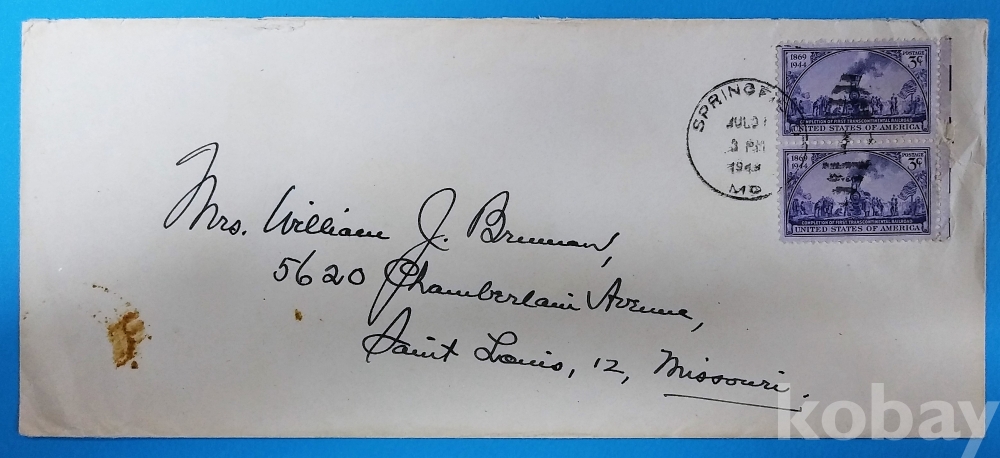 1869
1944
POSTAGE
3¢
COMPLETION OF FIRST TRANSCONTINENTAL RAILROAD
UNITED STATES OF AMERICA
1869
1944
POSTAGE
3¢
COMPLETION OF FIRST TRANSCONTINENTAL RAILROAD
UNITED STATES OF AMERICA
JUL
3 PM
MO
Mrs. William J. Brennan,
5620 Chamberlain Avenue,
Saint Louis, 12, Missouri.
kobay